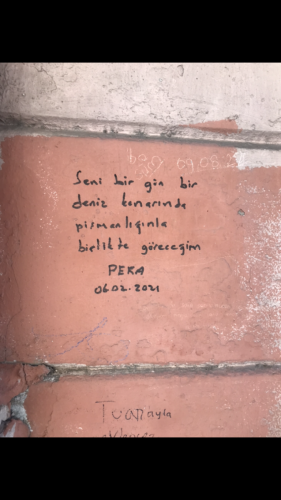 Seni bir gün bir
deniz kenarında
pişmanlığınla
birlikte göreceğim
PEKA
06.02.2021
Tuanayla